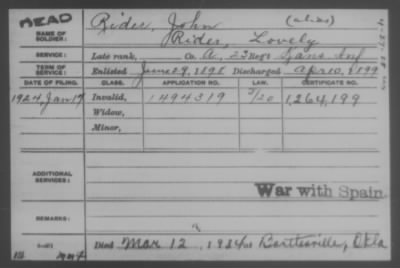 DEAD
NAME OF SOLDIER: Rider, John (alias)
Rider, Lovely
SERVICE: Late rank, Co. A, 23 Reg't Kans Inf
TERM OF SERVICE: Enlisted June 29, 1898 Discharged Apr 10, 1899
DATE OF FILING. CLASS. APPLICATION NO. LAW. CERTIFICATE NO.
1924, Jan 17 Invalid, 1494319 1,264,199
Widow,
Minor,
ADDITIONAL SERVICES:
War with Spain.
REMARKS:
Died Mar 12, 1924 at Bartlesville, Okla